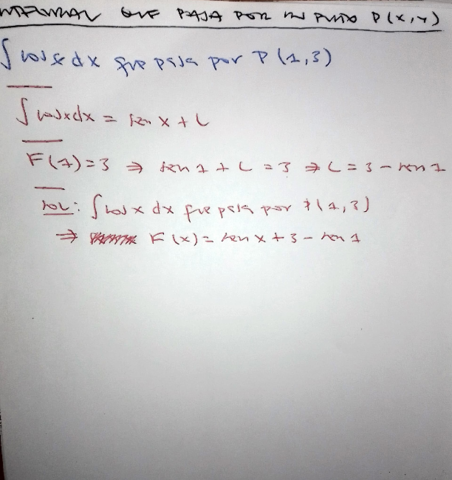 INTEGRAL QUE PASA POR UN PUNTO P(X,Y)
∫cosx dx que pasa por P(1,3)
∫cosxdx = sen x + C
F(1)=3 ⇒ sen 1 + C = 3 ⇒ C = 3 - sen 1
SOL: ∫cosx dx que pasa por P(1,3)
⇒ F(x) = sen x + 3 - sen 1